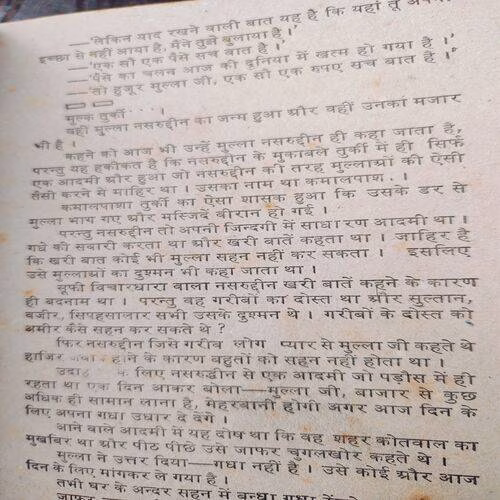 —'लेकिन याद रखने वाली बात यह है कि यहां तू अपनी
इच्छा से नहीं आया है, मैंने तुझे बुलाया है।'
—'एक सौ एक पैसे सच बात है।'
—'पैसे का चलन आज की दुनिया में खत्म हो गया है।'
—'तो हुजूर मुल्ला जी, एक सौ एक रुपए सच बात है।'
मुल्क तुर्की....।
वहीं मुल्ला नसरुद्दीन का जन्म हुआ और वहीं उनका मजार
भी है।
कहने को आज भी उन्हें मुल्ला नसरुद्दीन ही कहा जाता है,
परन्तु यह हकीकत है कि नसरुद्दीन के मुकाबले तुर्की में ही सिर्फ
एक आदमी और हुआ जो नसरुद्दीन की तरह मुल्लाओं की ऐसी
तैसी करने से माहिर था। उसका नाम था कमालपाश.।
कमालपाशा तुर्की का ऐसा शासक हुआ कि उसके डर से
मुल्ला भाग गए और मस्जिदें वीरान हो गई।
परन्तु नसरुद्दीन तो अपनी जिन्दगी में साधारण आदमी था।
गधे की सवारी करता था और खरी बातें कहता था। जाहिर है
कि खरी बात कोई भी मुल्ला सहन नहीं कर सकता। इसलिए
उसे मुल्लाओं का दुश्मन भी कहा जाता था।
सूफी विचारधारा वाला नसरुद्दीन खरी बातें कहने के कारण
ही बदनाम था। परन्तु वह गरीबों का दोस्त था और सुल्तान,
वजीर, सिपहसालार सभी उसके दुश्मन थे। गरीबों के दोस्त को
अमीर कैसे सहन कर सकते थे?
फिर नसरुद्दीन जिसे गरीब लोग प्यार से मुल्ला जी कहते थे
हाजिर होने के कारण बहुतों को सहन नहीं होता था।
के लिए नसरुद्धीन से एक आदमी जो पड़ौस में ही
रहता था एक दिन आकर बोला—मुल्ला जी, बाजार से कुछ
अधिक ही सामान लाना है, मेहरबानी होगी अगर आज दिन के
लिए अपना गधा उधार दे देंगे।
आने वाले आदमी में यह दोष था कि वह शहर कोतवाल का
मुखबिर था और पीठ पीछे उसे जाफर चुगलखोर कहते थे।
मुल्ला ने उत्तर दिया—गधा नहीं है। उसे कोई और आज
दिन के लिए मांगकर ले गया है।
तभी घर के अन्दर सहन में बन्धा गधा
जाफर